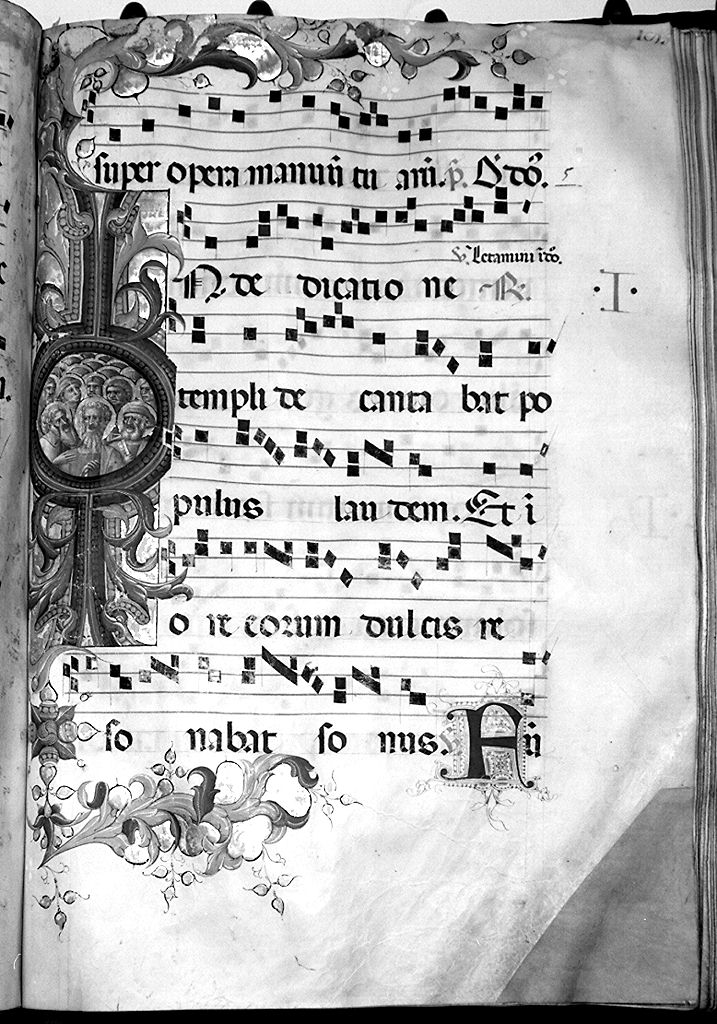 101.
super opera manuū tu arū. p̄. Qđo. 5
℣. Letamini ī dño.
N de dicatio ne R. · I ·
templi de canta bat po
pulus lau dem. Et ī
o re eorum dulcis re
so nabat so nus. ℣ Fū